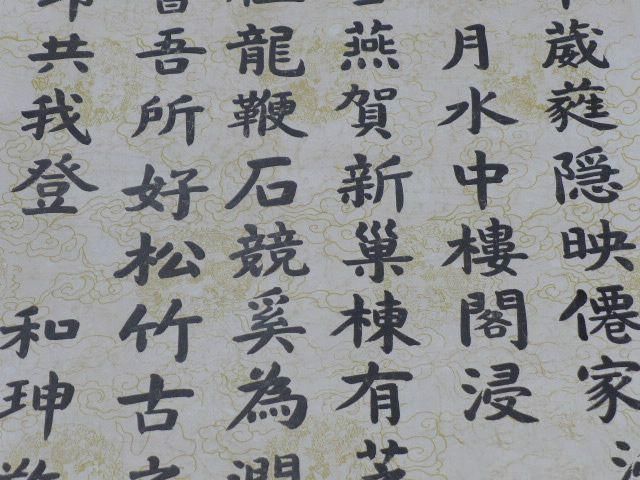 葳蕤隠映僊家
月水中樓閣浸
燕賀新巢棟有
龍鞭石競奚為
吾所好松竹古
共我登
和珅